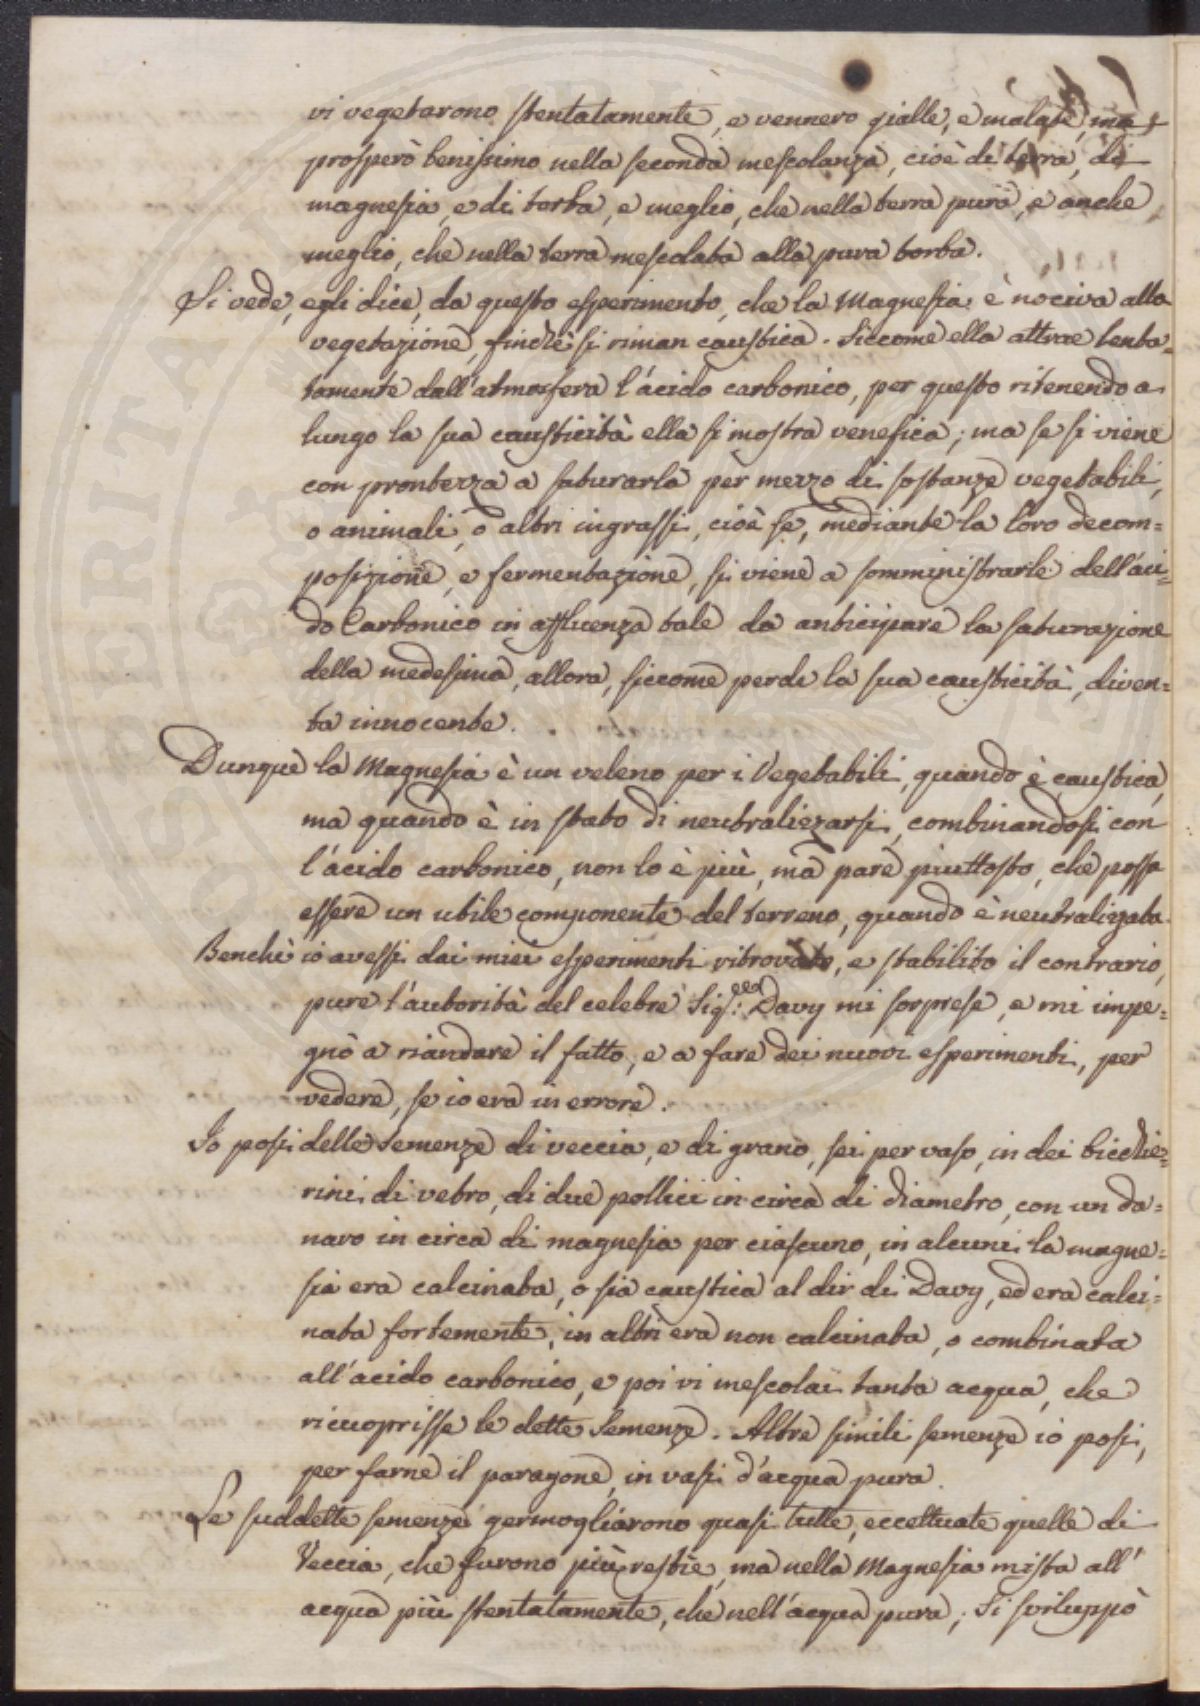 vi vegetarono stentatamente, e vennero gialle, e malate, ma
prosperò benissimo nella seconda mescolanza, cioè di terra, di
magnesia, e di torba, e meglio, che nella terra pura, e anche
meglio, che nella terra mescolata alla pura torba.
Si vede, egli dice, da questo esperimento, che la Magnesia è nociva alla
vegetazione, finchè si riman caustica. Siccome ella attrae lenta=
tamente dall'atmosfera l'ácido carbonico, per questo ritenendo a
lungo la sua causticità ella si mostra venefica; ma se si viene
con prontezza a saturarla per mezzo di sostanze vegetabili,
o animali, o altri ingrassi, cioè se, mediante la loro decom=
posizione, e fermentazione, si viene a somministrarle dell'áci=
do Carbonico in affluenza tale da anticipare la saturazione
della medesima, allora, siccome perde la sua causticità, diven=
ta innocente.
Dunque la Magnesia è un veleno per i Vegetabili, quando è caustica,
ma quando è in stato di neutralizzarsi, combinandosi con
l'ácido carbonico, non lo è più, ma pare piuttosto, che possa
essere un utile componente del terreno, quando è neutralizata.
Benchè io avessi dai miei esperimenti ritrovato, e stabilito il contrario,
pure l'autorità del celebre Sig.: Davy mi sorprese, e mi impe=
gnò a riandare il fatto, e a fare dei nuovi esperimenti, per
vedere, se io era in errore.
Io posi delle Semenze di veccia, e di grano, sei per vaso, in dei bicchie=
rini di vetro, di due pollici in circa di diametro, con un da=
naro in circa di magnesia per ciascuno, in alcuni la magne=
sia era calcinata, o sia caustica al dir di Davy, ed era calci=
nata fortemente, in altri era non calcinata, o combinata
all'ácido carbonico, e poi vi mescolai tanta acqua, che
ricuoprisse le dette Semenze. Altre simili semenze io posi,
per farne il paragone, in vasi d'acqua pura.
Le suddette semenze germogliárono quasi tutte, eccettuate quelle di
Veccia, che furono più restìe, ma nella Magnesia mista all'
acqua più stentatamente, che nell'ácqua pura; Si sviluppò